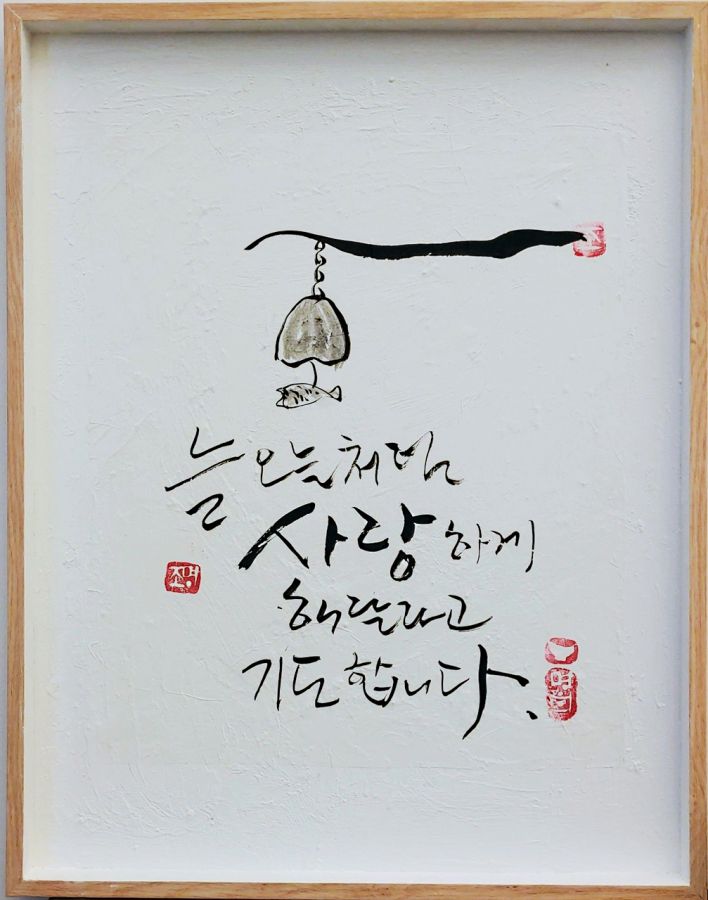 늘 오늘처럼
사랑하게
해달라고
기도합니다.